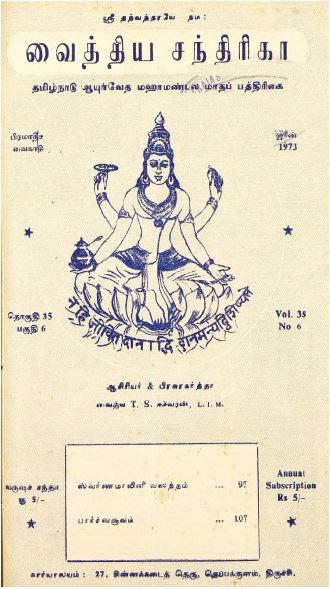 ஸ்ரீ தந்வந்தரயே நம:
வைத்திய சந்திரிகா
தமிழ்நாடு ஆயுர்வேத மஹாமண்டல மாதப் பத்திரிகை
பிரமாதீச
வைகாசி
ஜூன்
1973
न हि जीवितदानाद्धि दानमन्यद्विशिष्यते
தொகுதி 35
பகுதி 6
Vol. 35
No 6
ஆசிரியர் & பிரசுரகர்த்தா
வைத்ய T. S. ஈச்வரன், L. I. M.
வருஷச் சந்தா
ரூ 5/-
ஸ்வர்ணமாலினி வஸந்தம் ... 97
பார்ச்வசூலம் ... 107
Annual
Subscription
Rs 5/-
கார்யாலயம் : 27, சின்னக்கடைத் தெரு, தெப்பக்குளம், திருச்சி.